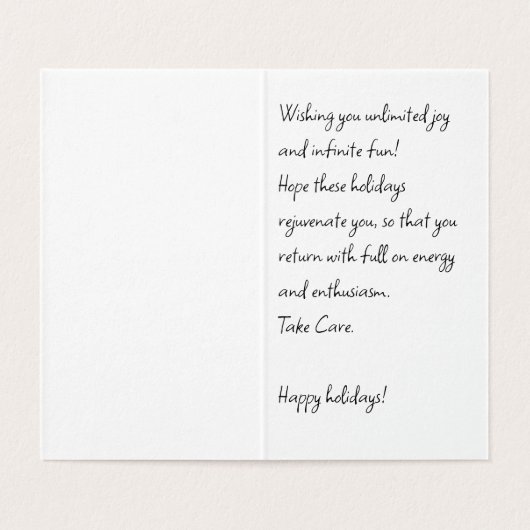 Wishing you unlimited joy
and infinite fun!
Hope these holidays
rejuvenate you, so that you
return with full on energy
and enthusiasm.
Take Care.
Happy holidays!